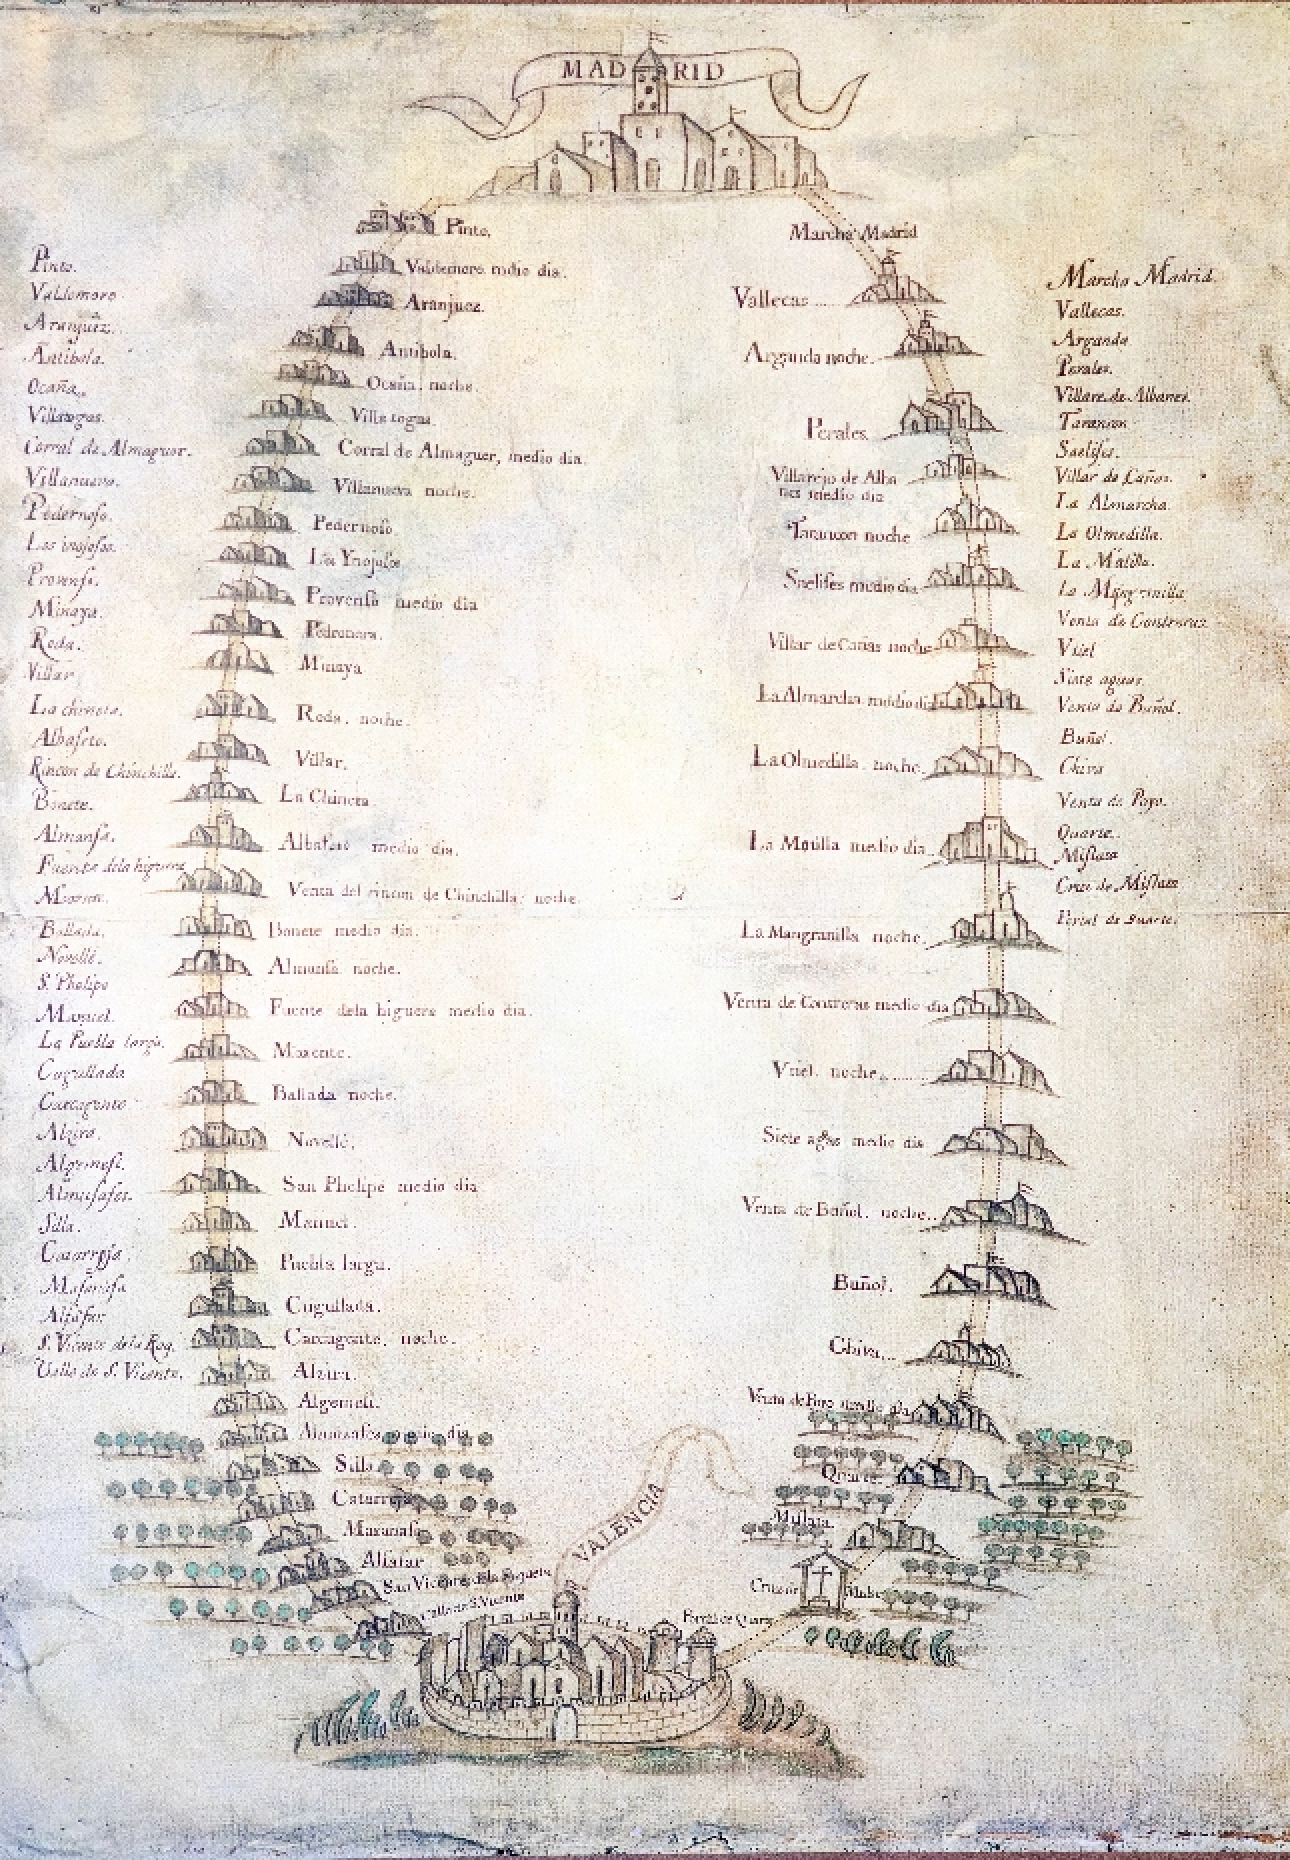 MADRID
Pinto.
Valdemoro
Aranjuez.
Antibola.
Ocaña
Villatogas.
Corral de Almaguer.
Villanueva.
Pedernoso.
Las inojosas.
Provensio.
Minaya.
Roda.
Villar
La chineta.
Albasete.
Rincon de Chinchilla.
Bonete.
Almansa.
Fuente dela higuera
Moxente.
Ballada.
Novellé.
S. Phelipe
Manuel.
La Puebla larga.
Cogullada
Carcagente
Alzira.
Algemesi.
Almusafes.
Silla.
Catarroja.
Masanasa
Alfafar
S. Vicente de la Roq.
Calle de S. Vicente.
Pinto.
Valdemoro. medio dia.
Aranjuez.
Antibola.
Ocaña. noche.
Villa togas.
Corral de Almaguer, medio dia.
Villanueva noche.
Pedernoso
Las Ynojosas
Provensio medio dia
Pedronera.
Minaya
Roda. noche.
Villar.
La Chineta
Albasete medio dia.
Venta del rincon de Chinchilla: noche.
Bonete medio dia.
Almansa noche.
Fuente dela higuera medio dia.
Moxente.
Ballada noche.
Novellé.
San Phelipe medio dia
Manuel.
Puebla larga.
Cugullada.
Carcagente. noche.
Alzira.
Algemesi.
Almusafes medio dia
Silla
Catarroja
Masanasa
Alfafar
San Vicente dela Roqueta
Calle de S. Vicente
VALENCIA
Marcha Madrid
Vallecas
Arganda noche.
Perales.
Villarejo de Alba
nes medio dia
Tarancon noche
Saelises medio dia
Villar de Cañas noche
La Almarcha medio dia
La Olmedilla. noche.
La Motilla medio dia
La Mangranilla noche.
Venta de Contreras medio dia
Vtiel. noche.
Siete agas medio dia
Venta de Buñol. noche.
Buñol.
Chiva
Venta de Poyo medio dia
Quarte.
Mislata.
Cruz de Mislata
Portal de Quarte
Marcha Madrid.
Vallecas.
Arganda
Perales.
Villare. de Albanes.
Tarancon
Saelises.
Villar de Cañas.
La Almarcha.
La Olmedilla.
La Matilla.
La Mangranilla
Venta de Contreras
Vtiel
Siete aguas.
Venta de Buñol.
Buñol.
Chiva
Venta de Poyo.
Quarte.
Mislata
Cruz de Mislata
Portal de Quarte.